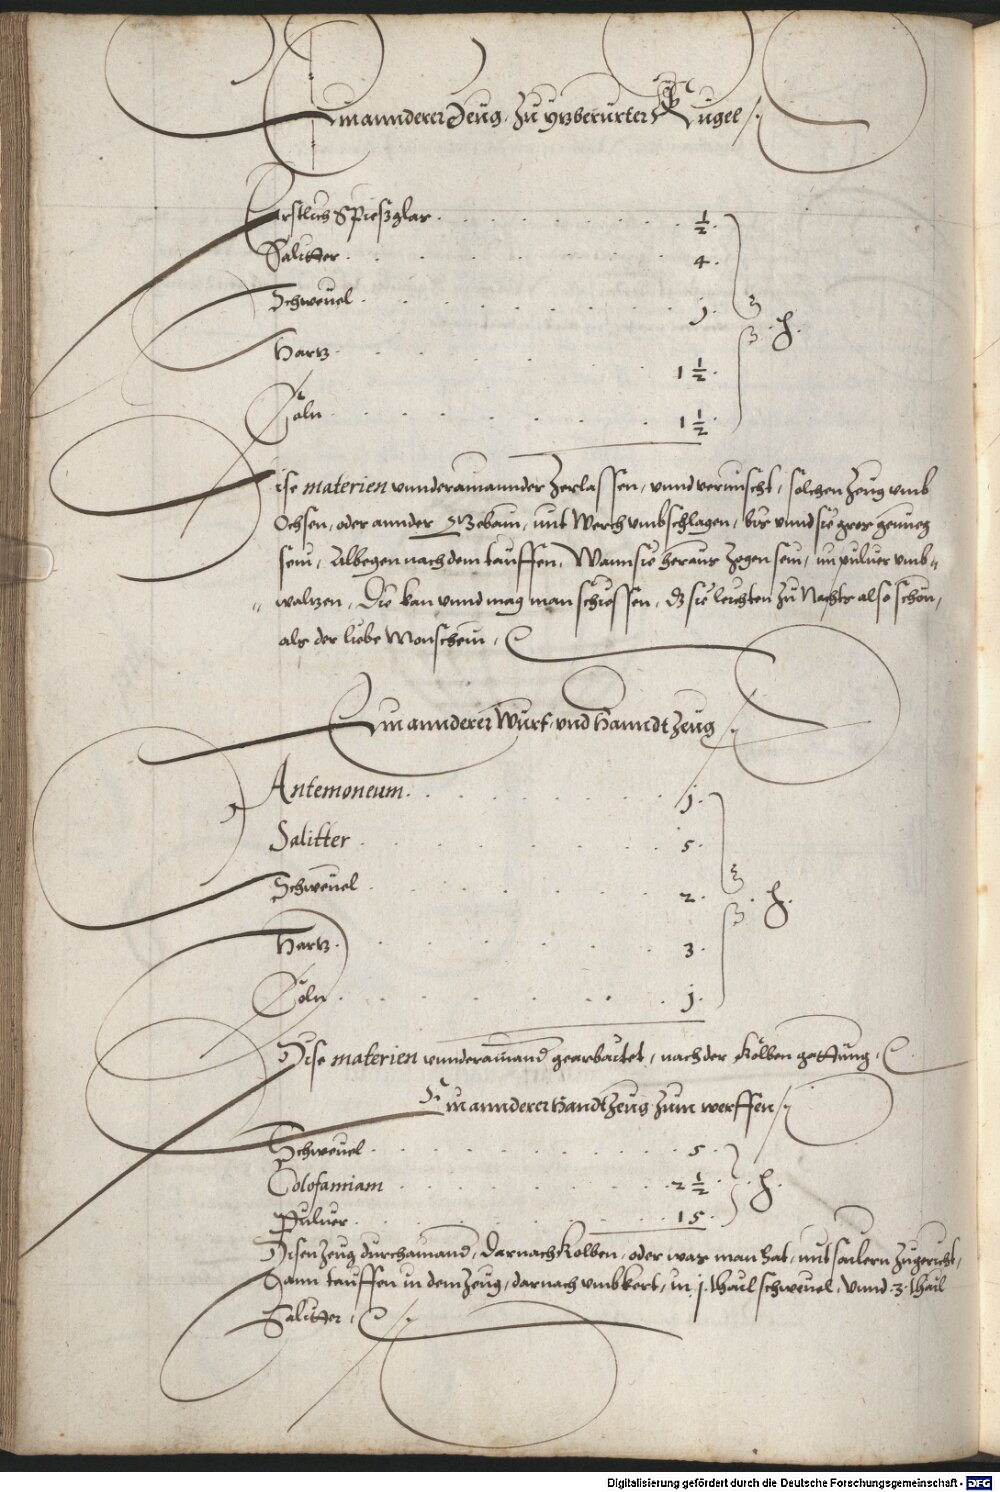 Ein annderer Zeug, zu ytzberürter Kugel
Erstlich Spieszglas . . . . . . ½ .
Salitter . . . . . . 4 .
Schweuel . . . . . . j .
℔.
Hartz . . . . . . 1 ½ .
Coln . . . . . . 1 ½ .
Dise materien vnnderainannder zerlassen, vnnd vermischt, solchen zeug vmb
Ochsen, oder annder, mit Werch vmbschlagen, bis vnnd sie gros genueg
sein, Albegen nach dem tauffen, Wann sie heraus zogen sein, im puluer vmb„
„ waltzen, Die kan vnnd mag man schiessen, dz sie leuchten zu Nachts also schön,
als der liebe Monschein,
Ein annderer Wurf, vnd Hanndt zeug
Antemoneum . . . . . . j .
Salitter . . . . . . 5 .
Schweuel . . . . . . 2 .
℔.
Hartz . . . . . . 3 .
Coln . . . . . . j .
Dise materien vnnderainand gearbaitet, nach der Kolben gattung,
Ein annderer Handt zeug zum werffen
Schweuel . . . . . . 5 .
Colofaniam . . . . . . 2 ½ . ℔.
Puluer . . . . . . 15 .
Disen zeug durchainand, darnach Kolben, oder was man hat, mit zugericht,
Dann tauffen in dem zeug, darnach vmbkert, in j. thail schweuel, vnnd .3. thail
Salitter,
Digitalisierung gefördert durch die Deutsche Forschungsgemeinschaft - DFG